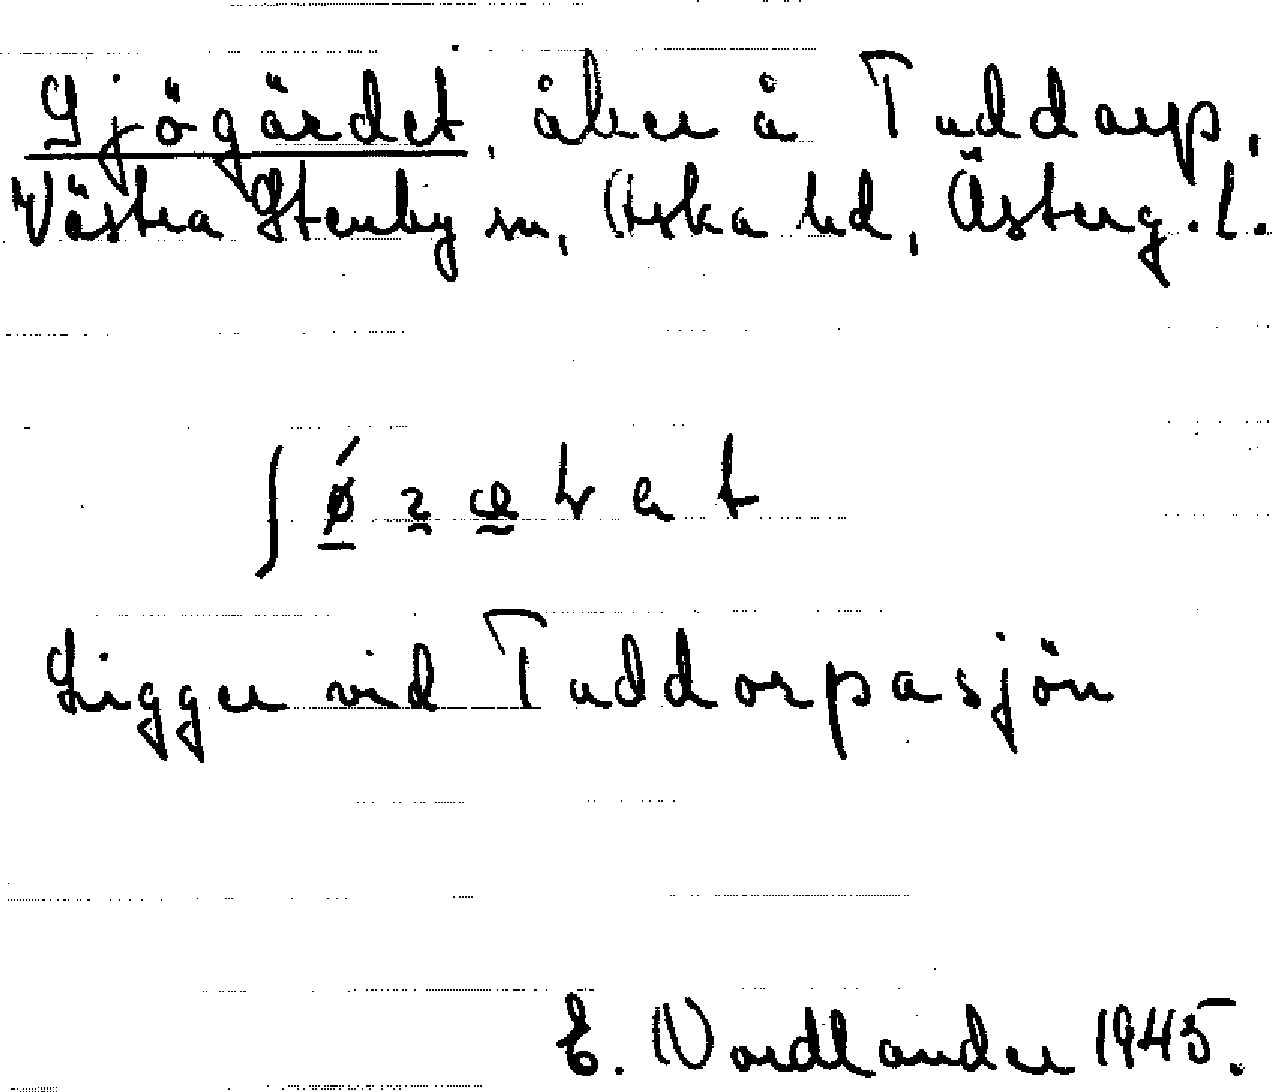 Sjögärdet, åker å Tuddarp,
Västra Stenby sn, Aska hd, Österg. l.
Ligger vid Tuddorpasjön
E. Nordlander 1945.